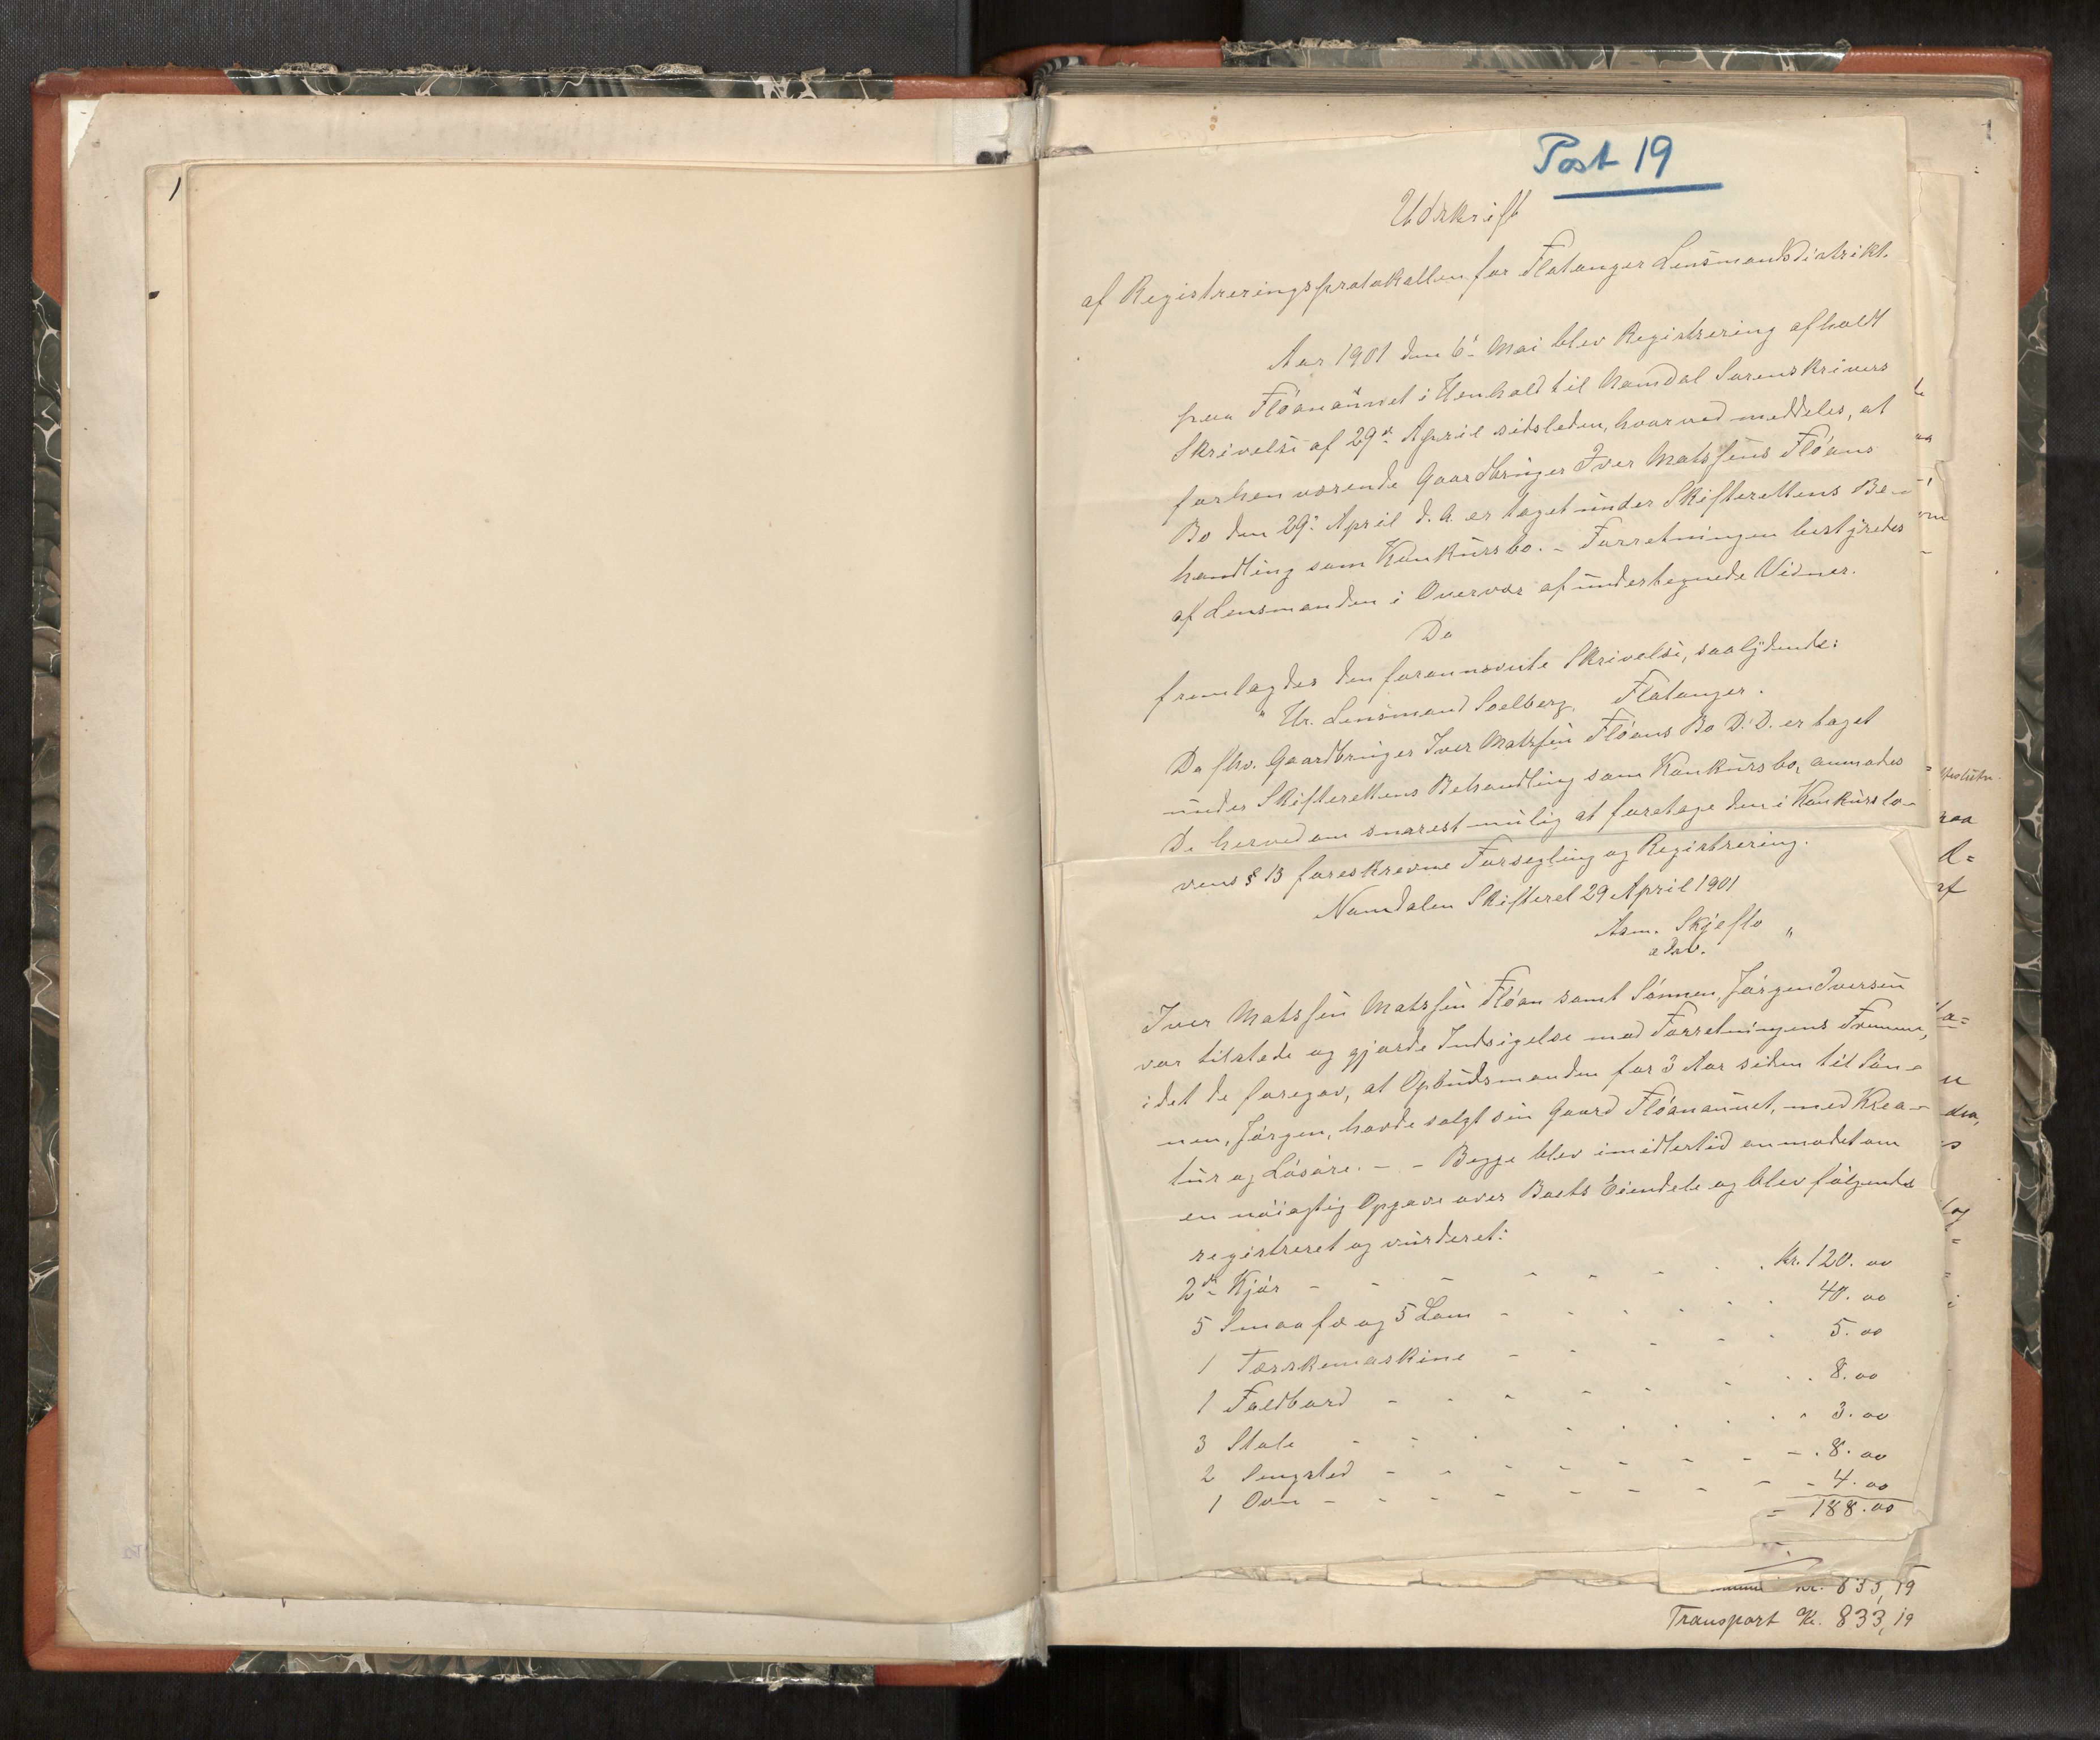 1
Post 19
Udskrift
af Registreringsprotokollen for Flatanger Lensmandsdistrikt.
Aar 1901 den 6' Mai blev Registrering afholdt
paa Flöanaunet i Henhold til Namdal Sorenskrivers
Skrivelse af 29de April sidstleden, hvorved meddeles, at
forhenværende Gaardbruger Iver Matssens Flöans
Bo den 29' April d. A. er taget under Skifterettens Be-
handling som Konkursbo. - Forretningen bestyredes
af Lensmanden i Overvær af undertegnede Vidner.
Da
fremlagdes den forannævnte Skrivelse, saalydende:
" Hr. Lensmand Soelberg, Flatanger.
Da fhv. Gaardbruger Iver Matssen Flöans Bo D. D. er taget
under Skifterettens Behandling som Konkursbo, anmodes
De herved om snarest mulig at foretage den i Konkurslo-
vens § 13 foreskrevne Forsegling og Registrering.
Namdalen Skifteret 29 April 1901
Asm. Skjeflo "
edsv.
Iver Matssen Matssen Flöan samt Sönnen, Jörgen Iversen
var tilstede og gjorde Indsigelse mod Forretningens Fremme,
idet de foregav, at Opbudsmanden for 3 Aar siden til Sön-
nen, Jörgen, havde solgt sin Gaard Flöanaunet, med Krea-
tur og Lösöre. - - Begge blev imidlertid anmodet om
en nöiagtig Opgave over Boets Eiendele og blev fölgende
registreret og vurderet:
2de Kjör - - - - - - - Kr. 120. 00
5 Smaafæ og 5 Lam - - - - - 40. 00
1 Tærskemaskine - - - - - 5. 00
1 Foldbord - - - - - - - 8. 00
3 Stole - - - - - - - 3. 00
2 Sengsted - - - - - - - 8. 00
1 Ovn - - - - - - - - 4. 00
= 188. 00
Transport Kr. 833,19
1